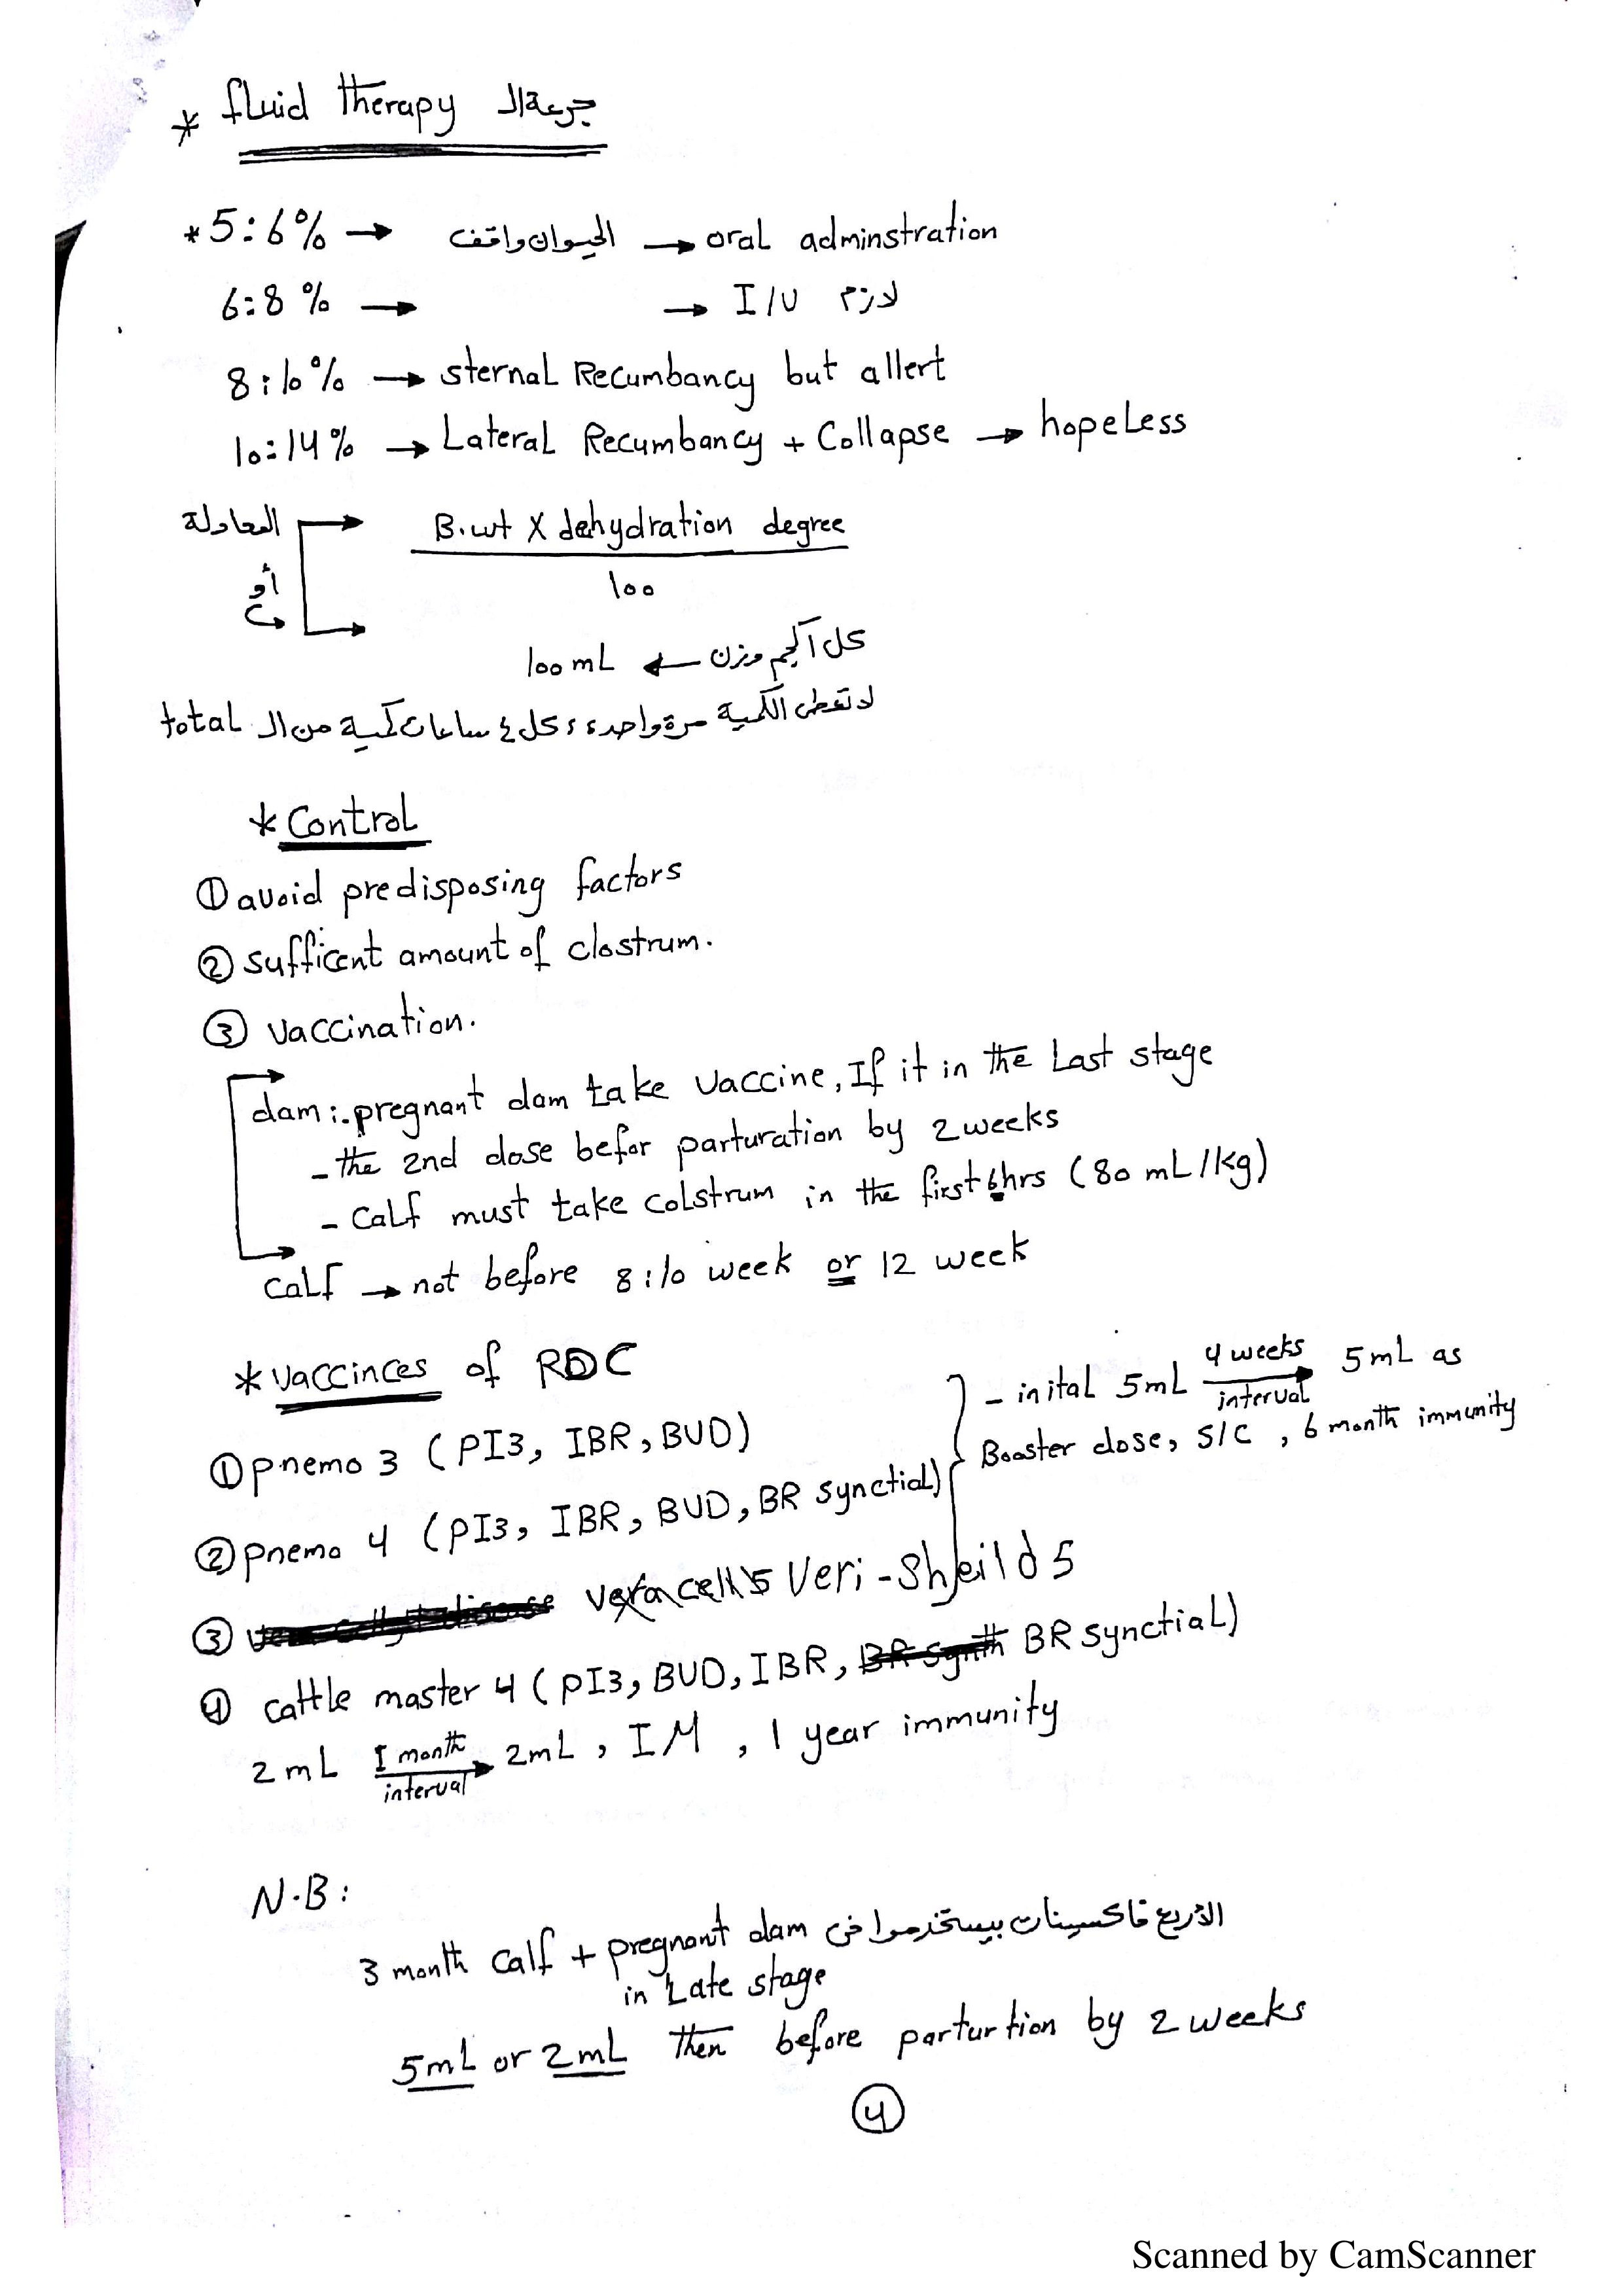 * fluid therapy جرعة ال
* 5:6% → الحيوان واقف → oral adminstration
6:8% → → I/V لازم
8:10% → sternal Recumbancy but allert
10:14% → Lateral Recumbancy + Collapse → hopeless
المعادلة → B.wt X dehydration degree
100
أو
كل ١ كجم وزن ← 100 mL
لا تعطى الكمية مرة واحدة، كل ٤ ساعات كمية من ال total
* Control
① avoid predisposing factors
② sufficent amount of clostrum.
③ vaccination.
dam:. pregnant dam take vaccine, If it in the Last stage
- the 2nd dose befor parturation by 2 weeks
- Calf must take colstrum in the first 6hrs (80 mL/kg)
Calf → not before 8:10 week or 12 week
* vaccinces of RDC
① pnemo 3 (PI3, IBR, BVD)
② pnemo 4 (PI3, IBR, BVD, BR synctial)
- inital 5mL 4 weeks interval → 5mL as
Booster dose, S/C, 6 month immunity
③ Veri-Sheild 5
④ cattle master 4 (PI3, BVD, IBR, BR synctial)
2 mL 1 month interval → 2mL, IM, 1 year immunity
N.B:
الأربع فاكسينات بيستخدموا فى 3 month calf + pregnant dam
in Late stage
5mL or 2mL then before parturtion by 2 weeks
④
Scanned by CamScanner